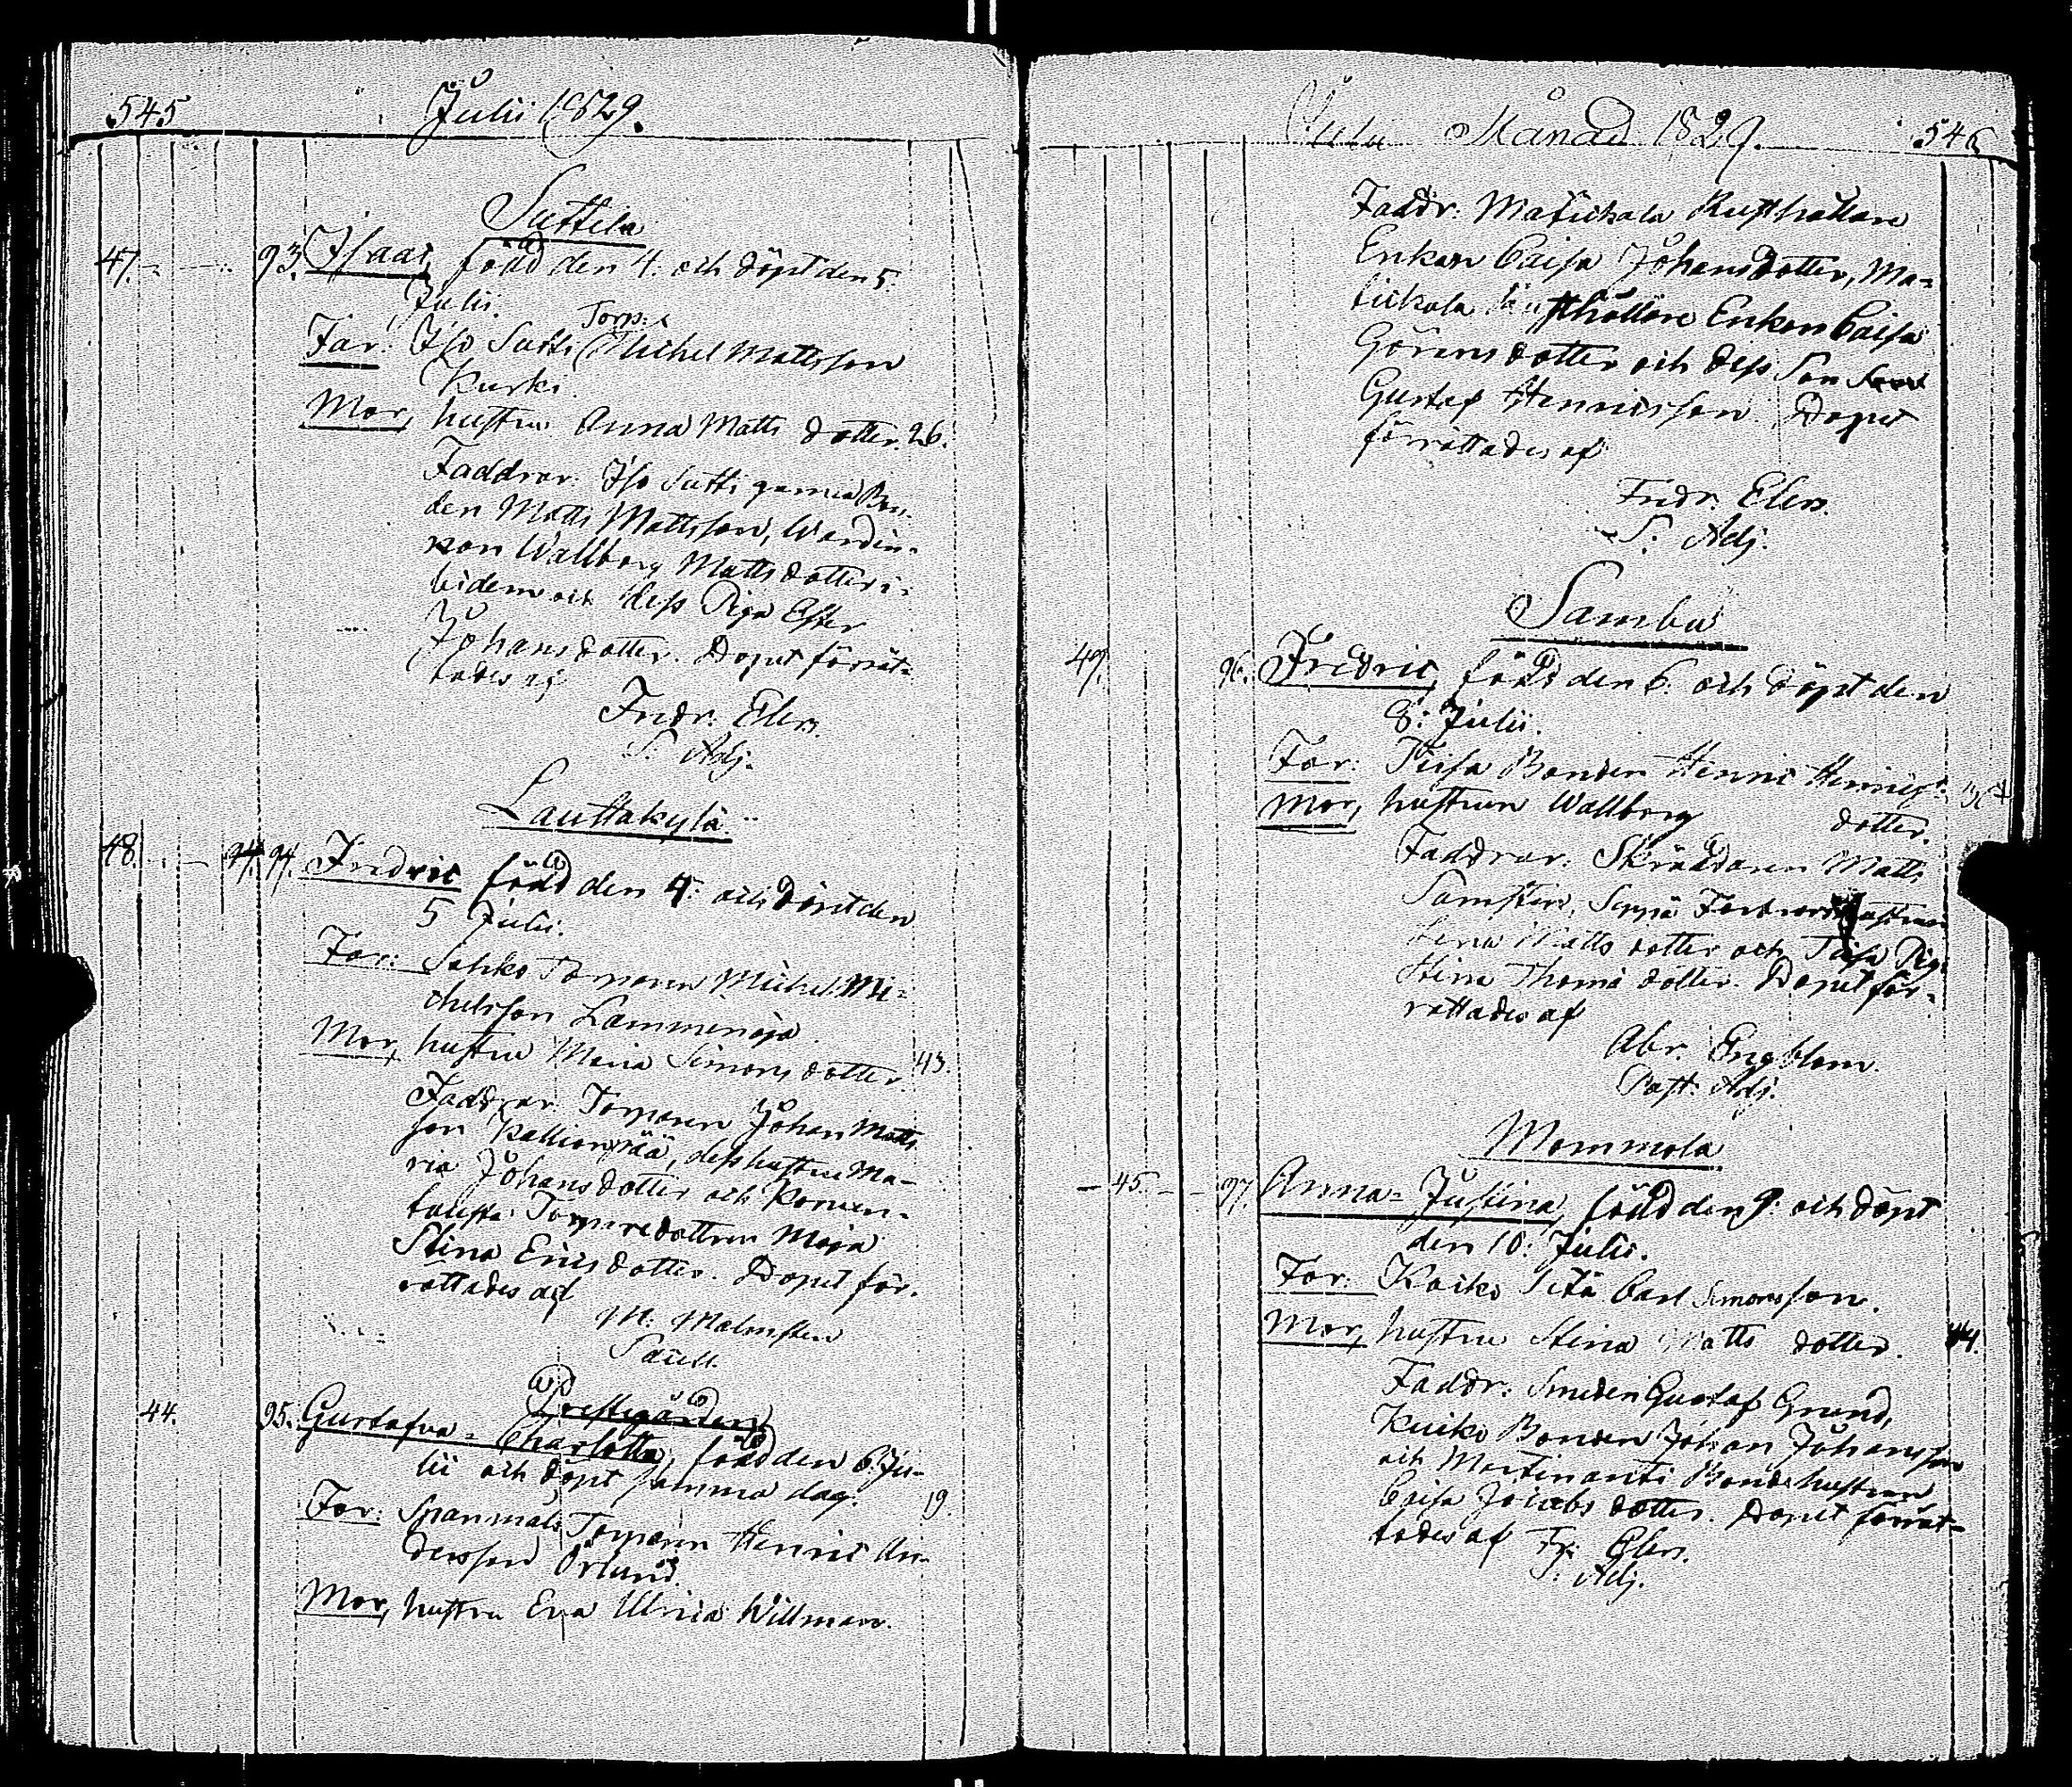 545 Julii 1829.
Suttila
47. 93. Isaac, född den 4. och döpt den 5.
Julii.
Torp:
Far: Iso Sutti Michel Mattsson
Kurki.
Mor, hustru Anna Matts dotter. 26.
Faddrar: Iso Sutti gamla Bon-
den Matts Mattsson, Wärdin-
nan Wallborg Mattsdotter i-
bidem och dess Piga Ester
Johansdotter. Dopet förrät-
tades af
Fredr. Elers.
P. Adj.
Lauttakylä
48. 94. 94. Fredric född den 4: och döpt den
5 Julii.
Far: Torparen Michel Mi-
chelsson Lammenoja
Mor, hustru Maria Simonsdotter 43.
Faddrar: Torparen Johan Matts
son Kallionpää, dess hustru Ma-
ria Johansdotter och Korven-
Torparedottren Maja
Stina Ericsdotter. Dopet för-
rättades af
M: Malmsten
Sacell.
Prestegården
44. 95. Gustafva-Charlotta, född den 6. Ju-
lii och döpt samma dag. 19.
Far: Spanmåls Torparen Henric An-
dersson Örlund.
Mor, hustru Eva Ulrica Willman.
Julii Månad 1829. 546
Faddr: Matickala Rusthållare
Enkan Caisa Johansdotter, Ma-
tickala Rusthållare Enkan Caisa
Göransdotter och dess Son
Gustaf Henricsson. Dopet
förrättades af
Fredr. Elers.
P. Adj.
Sambu
49. 96. Fredric, född den 6. och döpt den
8: Julii.
Far: Bonden Henric Henrics.
Mor, hustrun Wallborg dotter.
Faddrar: Skräddaren Matts
Lena Matts dotter och Piga
Stina Thomä dotter. Dopet för-
rättades af
Abr. Engblom.
Past: Adj.
Mommola
45. 97. Anna-Justina, född den 9. och döpt
den 10. Julii.
Far: Carl Simonsson.
Mor, hustru Stina Matts dotter. 44.
Faddr: Smeden Gustaf Grund,
Bonden Johan Johansson
och Martinanti Bondehustrun
Caisa Jacobs dotter. Dopet förrät-
tades af Fr: Elers.
P. Adj.